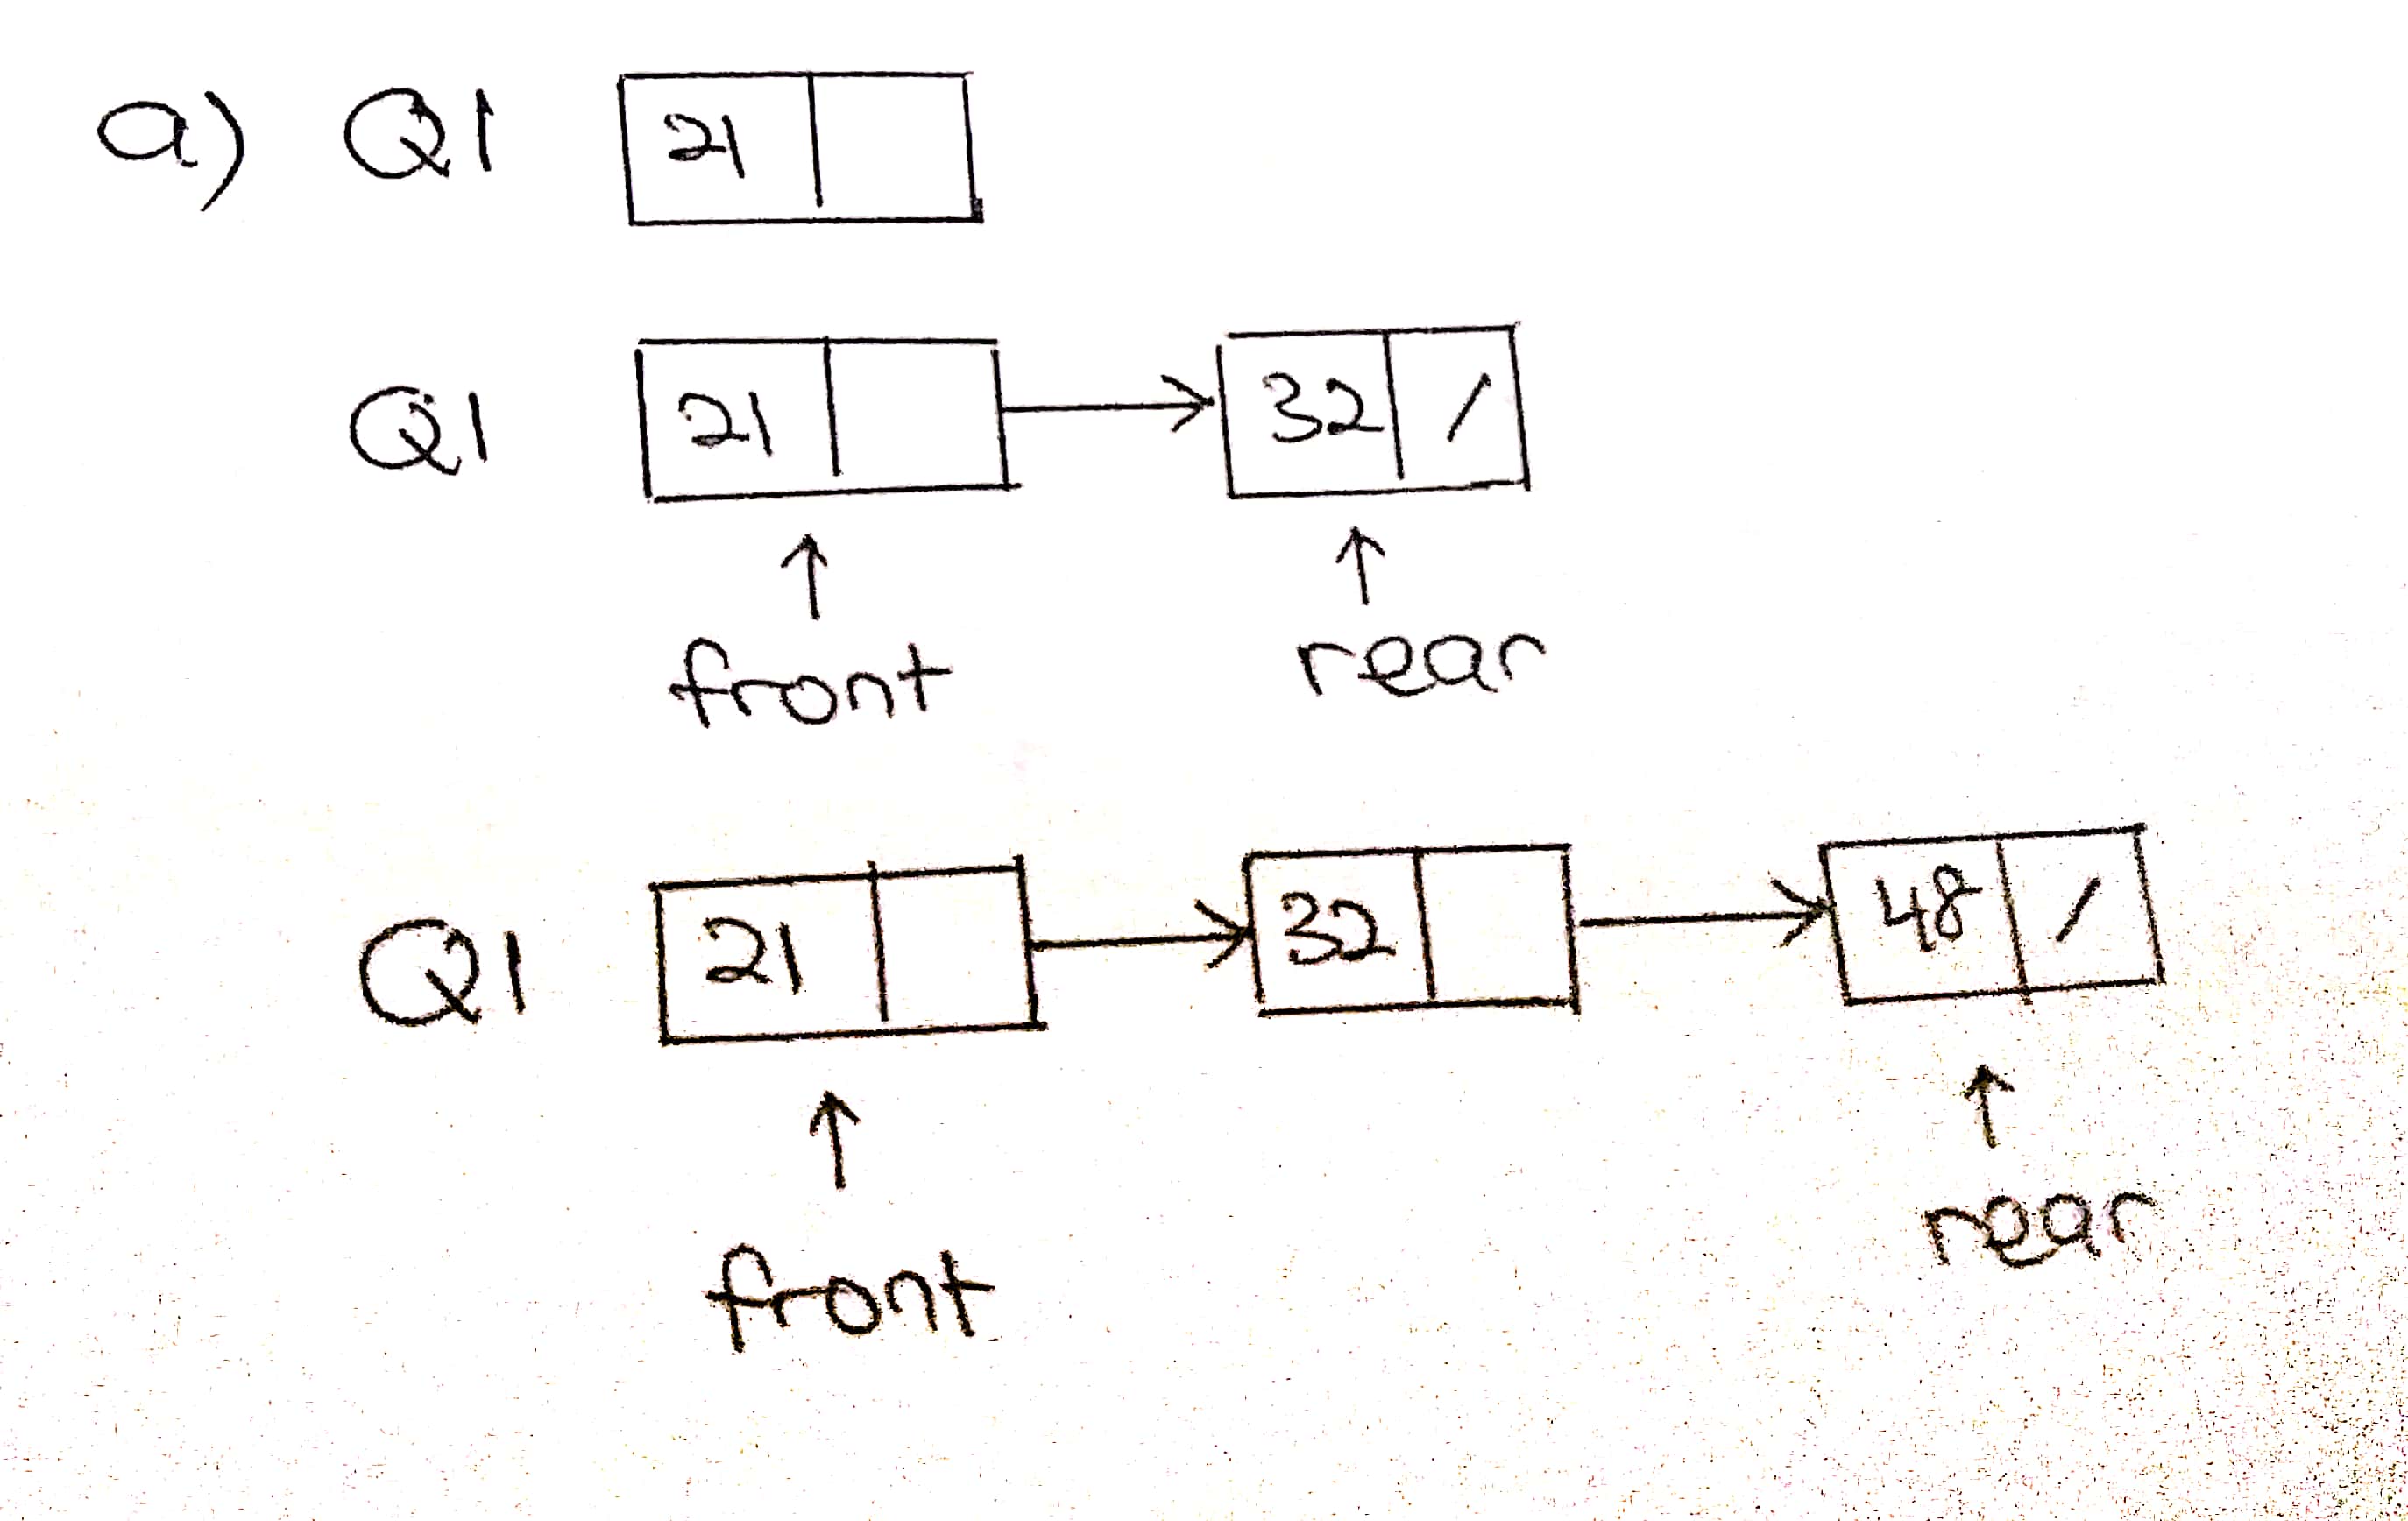 a) Q1 21
Q1 21 32 /
front rear
Q1 21 32 48 /
front rear